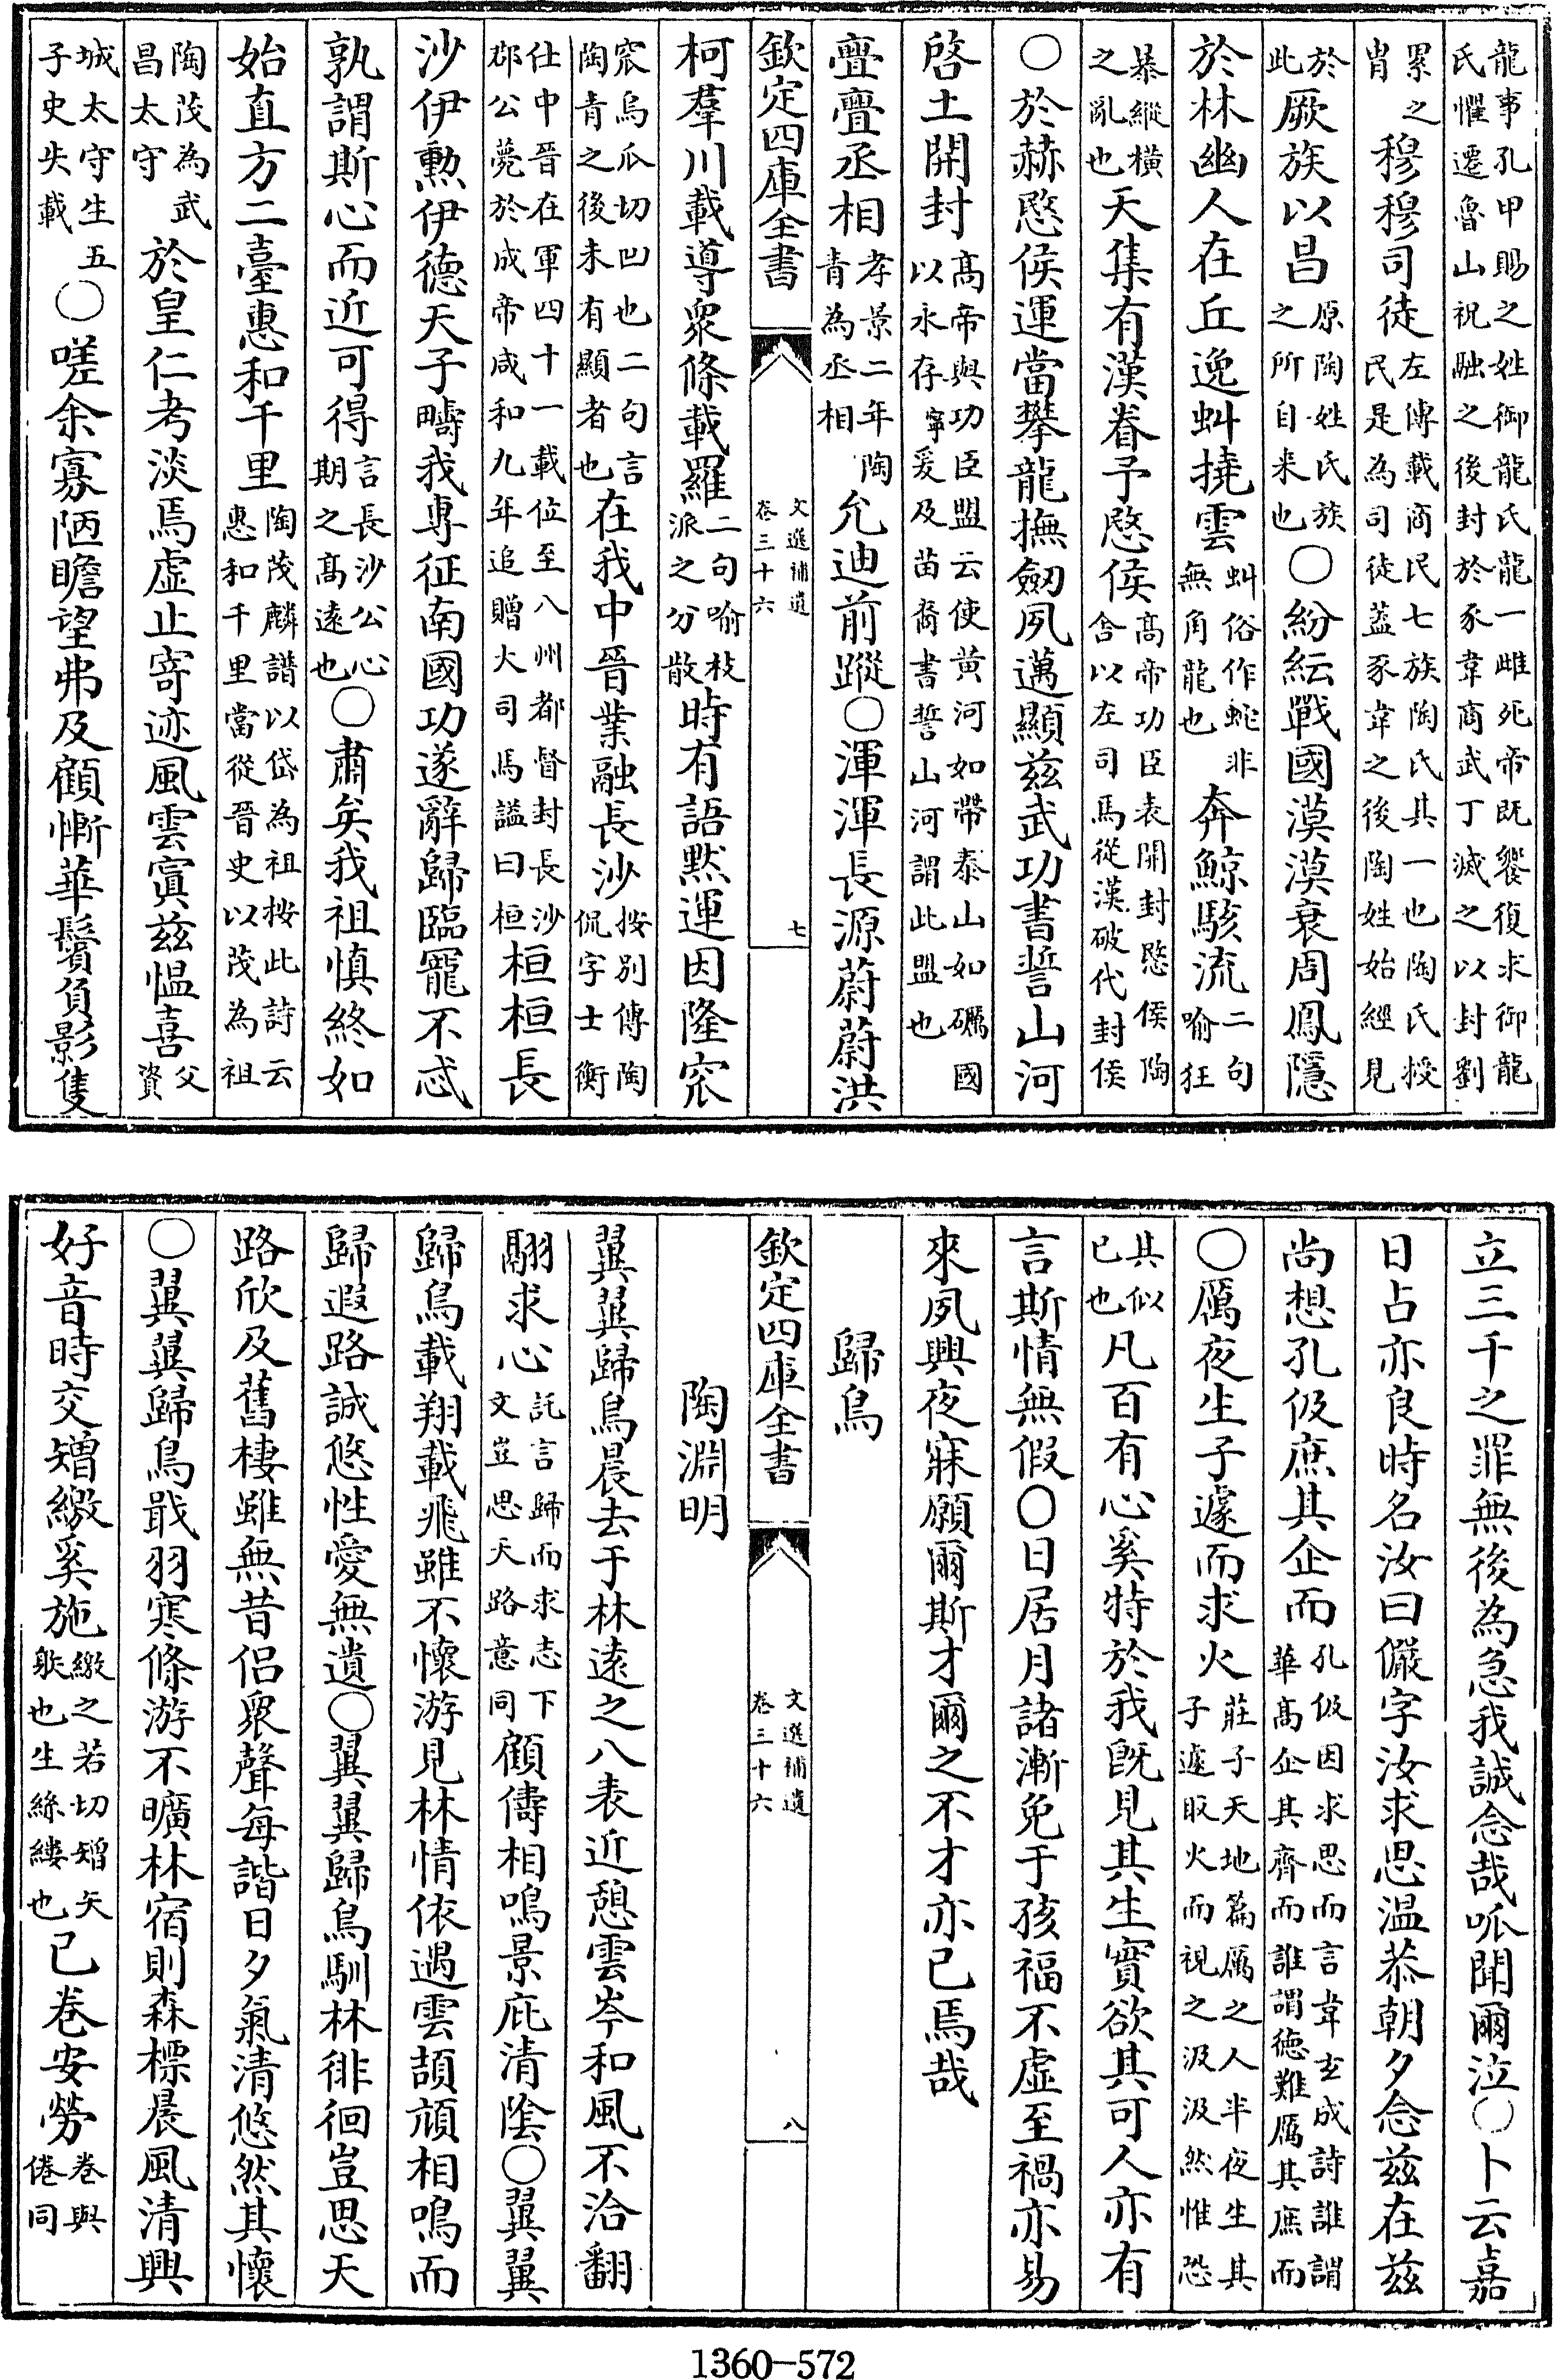 龍事孔甲賜之姓御龍氏龍一雌死帝既饗復求御龍
氏懼遷魯山祝融之後封於豕韋商武丁滅之以封劉
累之
胄 穆穆司徒左傳載商民七族陶氏其一也陶氏授
民是為司徒蓋豕韋之後陶姓始經見
於此厥族以昌原陶姓氏族之所自来也〇紛紜戰國漠漠衰周鳳隱
於林幽人在丘逸虯撓雲虯俗作虵非無角龍也奔鯨駭流二句喻狂
暴縱横之亂也天集有漢眷予愍侯高帝功臣表開封愍侯陶舍以左司馬從漢破代封侯
〇於赫愍侯運當攀龍撫劒夙邁顯兹武功書誓山河
啓土開封高帝與功臣盟云使黄河如帶泰山如礪國以永存寜爰及苗裔書誓山河謂此盟也
亹亹丞相孝景二年陶青為丞相允迪前蹤〇渾渾長源蔚蔚洪
欽定四庫全書 文選補遺 卷三十六 七
柯羣川載導衆條載羅二句喻枝派之分散時有語黙運因隆窊
窊烏瓜切凹也二句言陶青之後未有顯者也在我中晉業融長沙按别傳陶侃字士衡
仕中晉在軍四十一載位至八州都督封長沙郡公薨於成帝咸和九年追贈大司馬諡曰桓桓桓長
沙伊勲伊德天子疇我専征南國功遂辭歸臨寵不忒
孰謂斯心而近可得言長沙公心期之高遠也〇肅矣我祖慎終如
始直方二臺惠和千里陶茂麟譜以岱為祖按此詩云惠和千里當從晉史以茂為祖
陶茂為武昌太守於皇仁考淡焉虚止寄迹風雲寘兹愠喜父資
城太守生五子史失載〇嗟余寡陋瞻望弗及顧慚華鬢負影隻
立三千之罪無後為急我誠念哉呱聞爾泣〇卜云嘉
日占亦良時名汝曰儼字汝求思温恭朝夕念兹在兹
尚想孔伋庶其企而孔伋因求思而言韋玄成詩誰謂華高企其齊而誰謂德難厲其庶而
〇厲夜生子遽而求火莊子天地篇厲之人半夜生其子遽取火而視之汲汲然惟恐
其似己也凡百有心奚特於我既見其生實欲其可人亦有
言斯情無假〇日居月諸漸免于孩福不虚至禍亦易
來夙興夜寐願爾斯才爾之不才亦已焉哉
歸鳥
欽定四庫全書 文選補遺 卷三十六 八
陶淵明
翼翼歸鳥晨去于林逺之八表近憩雲岑和風不洽翻
翮求心託言歸而求志下文豈思天路意同顧儔相鳴景庇清隂〇翼翼
歸鳥載翔載飛雖不懷游見林情依遇雲頡頏相鳴而
歸遐路誠悠性愛無遺〇翼翼歸鳥馴林徘徊豈思天
路欣及舊棲雖無昔侣衆聲每諧日夕氣清悠然其懷
〇翼翼歸鳥戢羽寒條游不曠林宿則森標晨風清興
好音時交矰繳奚施繳之若切矰矢躲也生絲縷也已巻安勞巻與倦同
1360-572